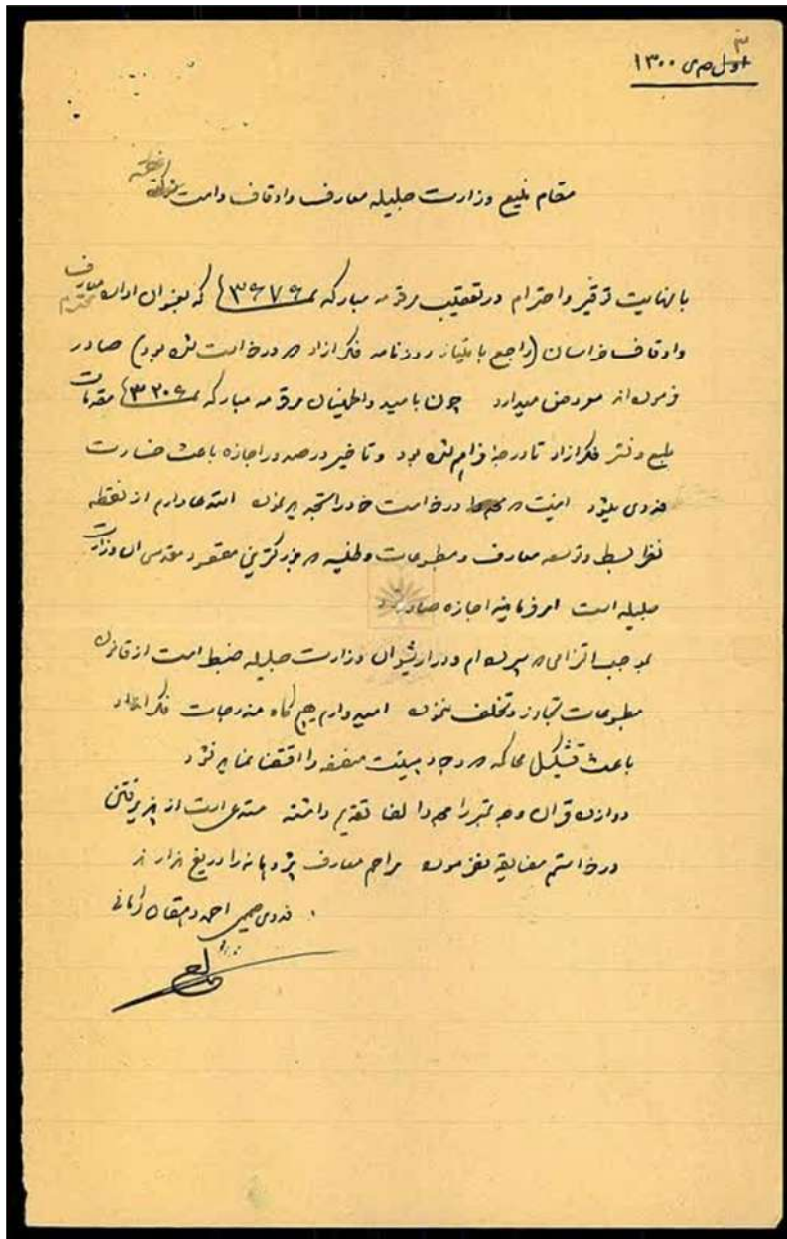 ۳ اول دی ۱۳۰۰
مقام منیع وزارت جلیله معارف و اوقاف دامت شوکته
با نهایت توقیر و احترام در تعقیب مرقومه مبارکه نمره که بعنوان اداره معارف محترم
و اوقاف خراسان (راجع بامتیاز روزنامه فکر آزاد که درخواست شده بود) صادر
فرموده‌اند معروض میدارد چون بامید و اطمینان مرقومه مبارکه نمره مقدمات
طبع و نشر فکر آزاد تا درجهٔ فراهم شده بود و تأخیر در صدور اجازه باعث خسارت
فدوی میشود اینست که درخواست خود را تجدید نموده استدعا دارم از نقطه
نظر بسط و توسعه معارف و مطبوعات وطنیه که بزرگترین مقصود مقدس آن وزارت
جلیله است امر فرمایند اجازه صادر شود
بموجب التزامی که سپرده‌ام و در آرشیو آن وزارت جلیله ضبط است از قانون
مطبوعات تجاوز و تخلف ننموده امیدوارم هیچگاه مندرجات فکر آزاد
باعث تشکیل محاکمه که وجود هیئت منصفه را اقتضا نماید نشود
دوازده قران وجه تمبر را مجدداً لفاً تقدیم داشته مستدعی است از پذیرفتن
درخواستم مضایقه نفرموده مراحم معارف پژوهانه را دریغ ندارند
فدوی صمیمی احمد دهقان